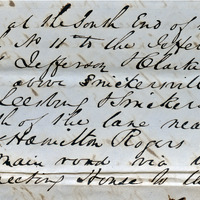 at the South End of
No 11 to the Jeffer
Jefferson & Clarke
above Snickersvill
Leesburg & Snicker
of the lane nea
Hamilton Rogers
main road via
eeting House to